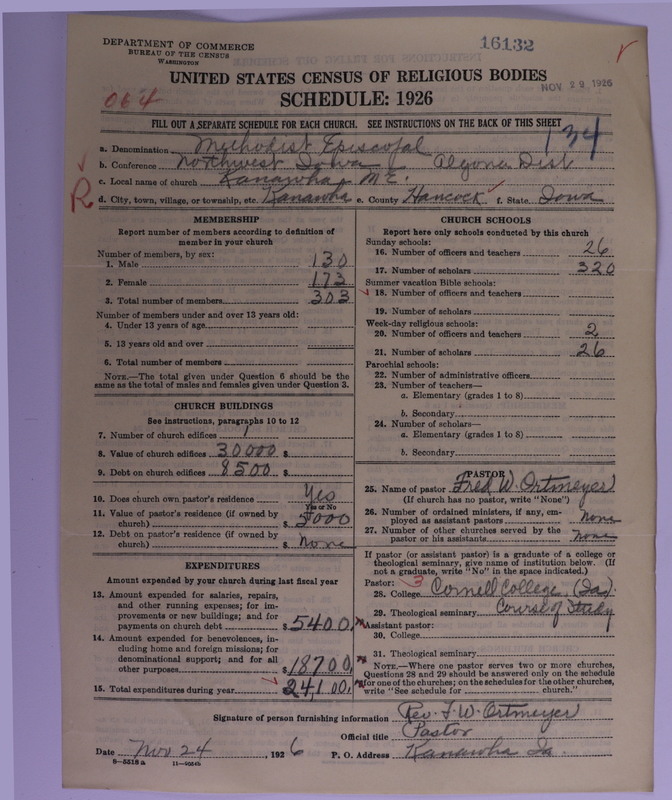 DEPARTMENT OF COMMERCE
BUREAU OF THE CENSUS
WASHINGTON
16132
UNITED STATES CENSUS OF RELIGIOUS BODIES
NOV 29 1926
064
SCHEDULE: 1926
FILL OUT A SEPARATE SCHEDULE FOR EACH CHURCH. SEE INSTRUCTIONS ON THE BACK OF THIS SHEET
134
a. Denomination Methodist Episcopal
b. Conference Northwest Iowa Algona Dist
c. Local name of church Kanawha M E.
R
d. City, town, village, or township, etc. Kanawha e. County Hancock f. State Iowa
MEMBERSHIP
Report number of members according to definition of
member in your church
Number of members, by sex:
1. Male 130
2. Female 173
3. Total number of members 303
Number of members under and over 13 years old:
4. Under 13 years of age
5. 13 years old and over
6. Total number of members
NOTE.—The total given under Question 6 should be the
same as the total of males and females given under Question 3.
CHURCH BUILDINGS
See instructions, paragraphs 10 to 12
7. Number of church edifices 1
8. Value of church edifices 30000 $
9. Debt on church edifices 8500 $
10. Does church own pastor's residence Yes
Yes or No
11. Value of pastor's residence (if owned by
church) $ 5000
12. Debt on pastor's residence (if owned by
church) $ none
EXPENDITURES
Amount expended by your church during last fiscal year
13. Amount expended for salaries, repairs,
and other running expenses; for im-
provements or new buildings; and for
payments on church debt $ 5400
14. Amount expended for benevolences, in-
cluding home and foreign missions; for
denominational support; and for all
other purposes $ 18700
15. Total expenditures during year $ 24100
CHURCH SCHOOLS
Report here only schools conducted by this church
Sunday schools:
16. Number of officers and teachers 26
17. Number of scholars 320
Summer vacation Bible schools:
18. Number of officers and teachers
19. Number of scholars
Week-day religious schools:
20. Number of officers and teachers 2
21. Number of scholars 26
Parochial schools:
22. Number of administrative officers
23. Number of teachers—
a. Elementary (grades 1 to 8)
b. Secondary
24. Number of scholars—
a. Elementary (grades 1 to 8)
b. Secondary
PASTOR
25. Name of pastor Fred W. Ortmeyer
(If church has no pastor, write "None")
26. Number of ordained ministers, if any, em-
ployed as assistant pastors none
27. Number of other churches served by the
pastor or his assistants none
If pastor (or assistant pastor) is a graduate of a college or
theological seminary, give name of institution below. (If
not a graduate, write "No" in the space indicated.)
Pastor: 3
28. College Cornell College (Ia).
29. Theological seminary Course of Study
Assistant pastor:
30. College
31. Theological seminary
NOTE.—Where one pastor serves two or more churches,
Questions 28 and 29 should be answered only on the schedule
for one of the churches; on the schedules for the other churches,
write "See schedule for church."
Signature of person furnishing information Rev. F. W. Ortmeyer
Official title Pastor
Date Nov 24, 1926 P. O. Address Kanawha Ia.
8—5518 a 11—9054b